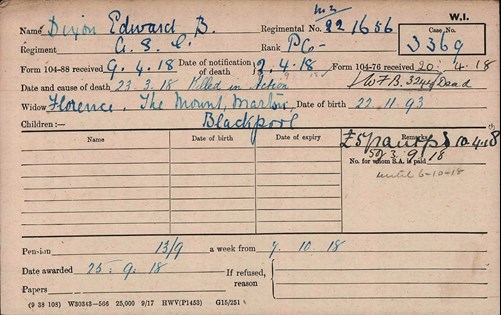 W.I.
Name Dixon Edward B. Regimental No. M2 221656 Case No.
Regiment A. S. C. Rank Pte 3369
Form 104-88 received 9. 4. 18 Date of notification of death 2. 4. 18 Form 104-76 received 20. 4. 18
Date and cause of death 23. 3. 18 Killed in Action Dead
Widow Florence. The Mount, Marton, Date of birth 22. 11. 93
Blackpool
Children:—
Name Date of birth Date of expiry Remarks 10.4.18
3. 9. 18
No. for whom S.A. is paid
until 6-10-18
Pension 13/9 a week from 7. 10. 18
Date awarded 25. 9. 18 If refused, reason
Papers
(9 38 108) W30343—566 25,000 9/17 HWV(P1453) G15/251